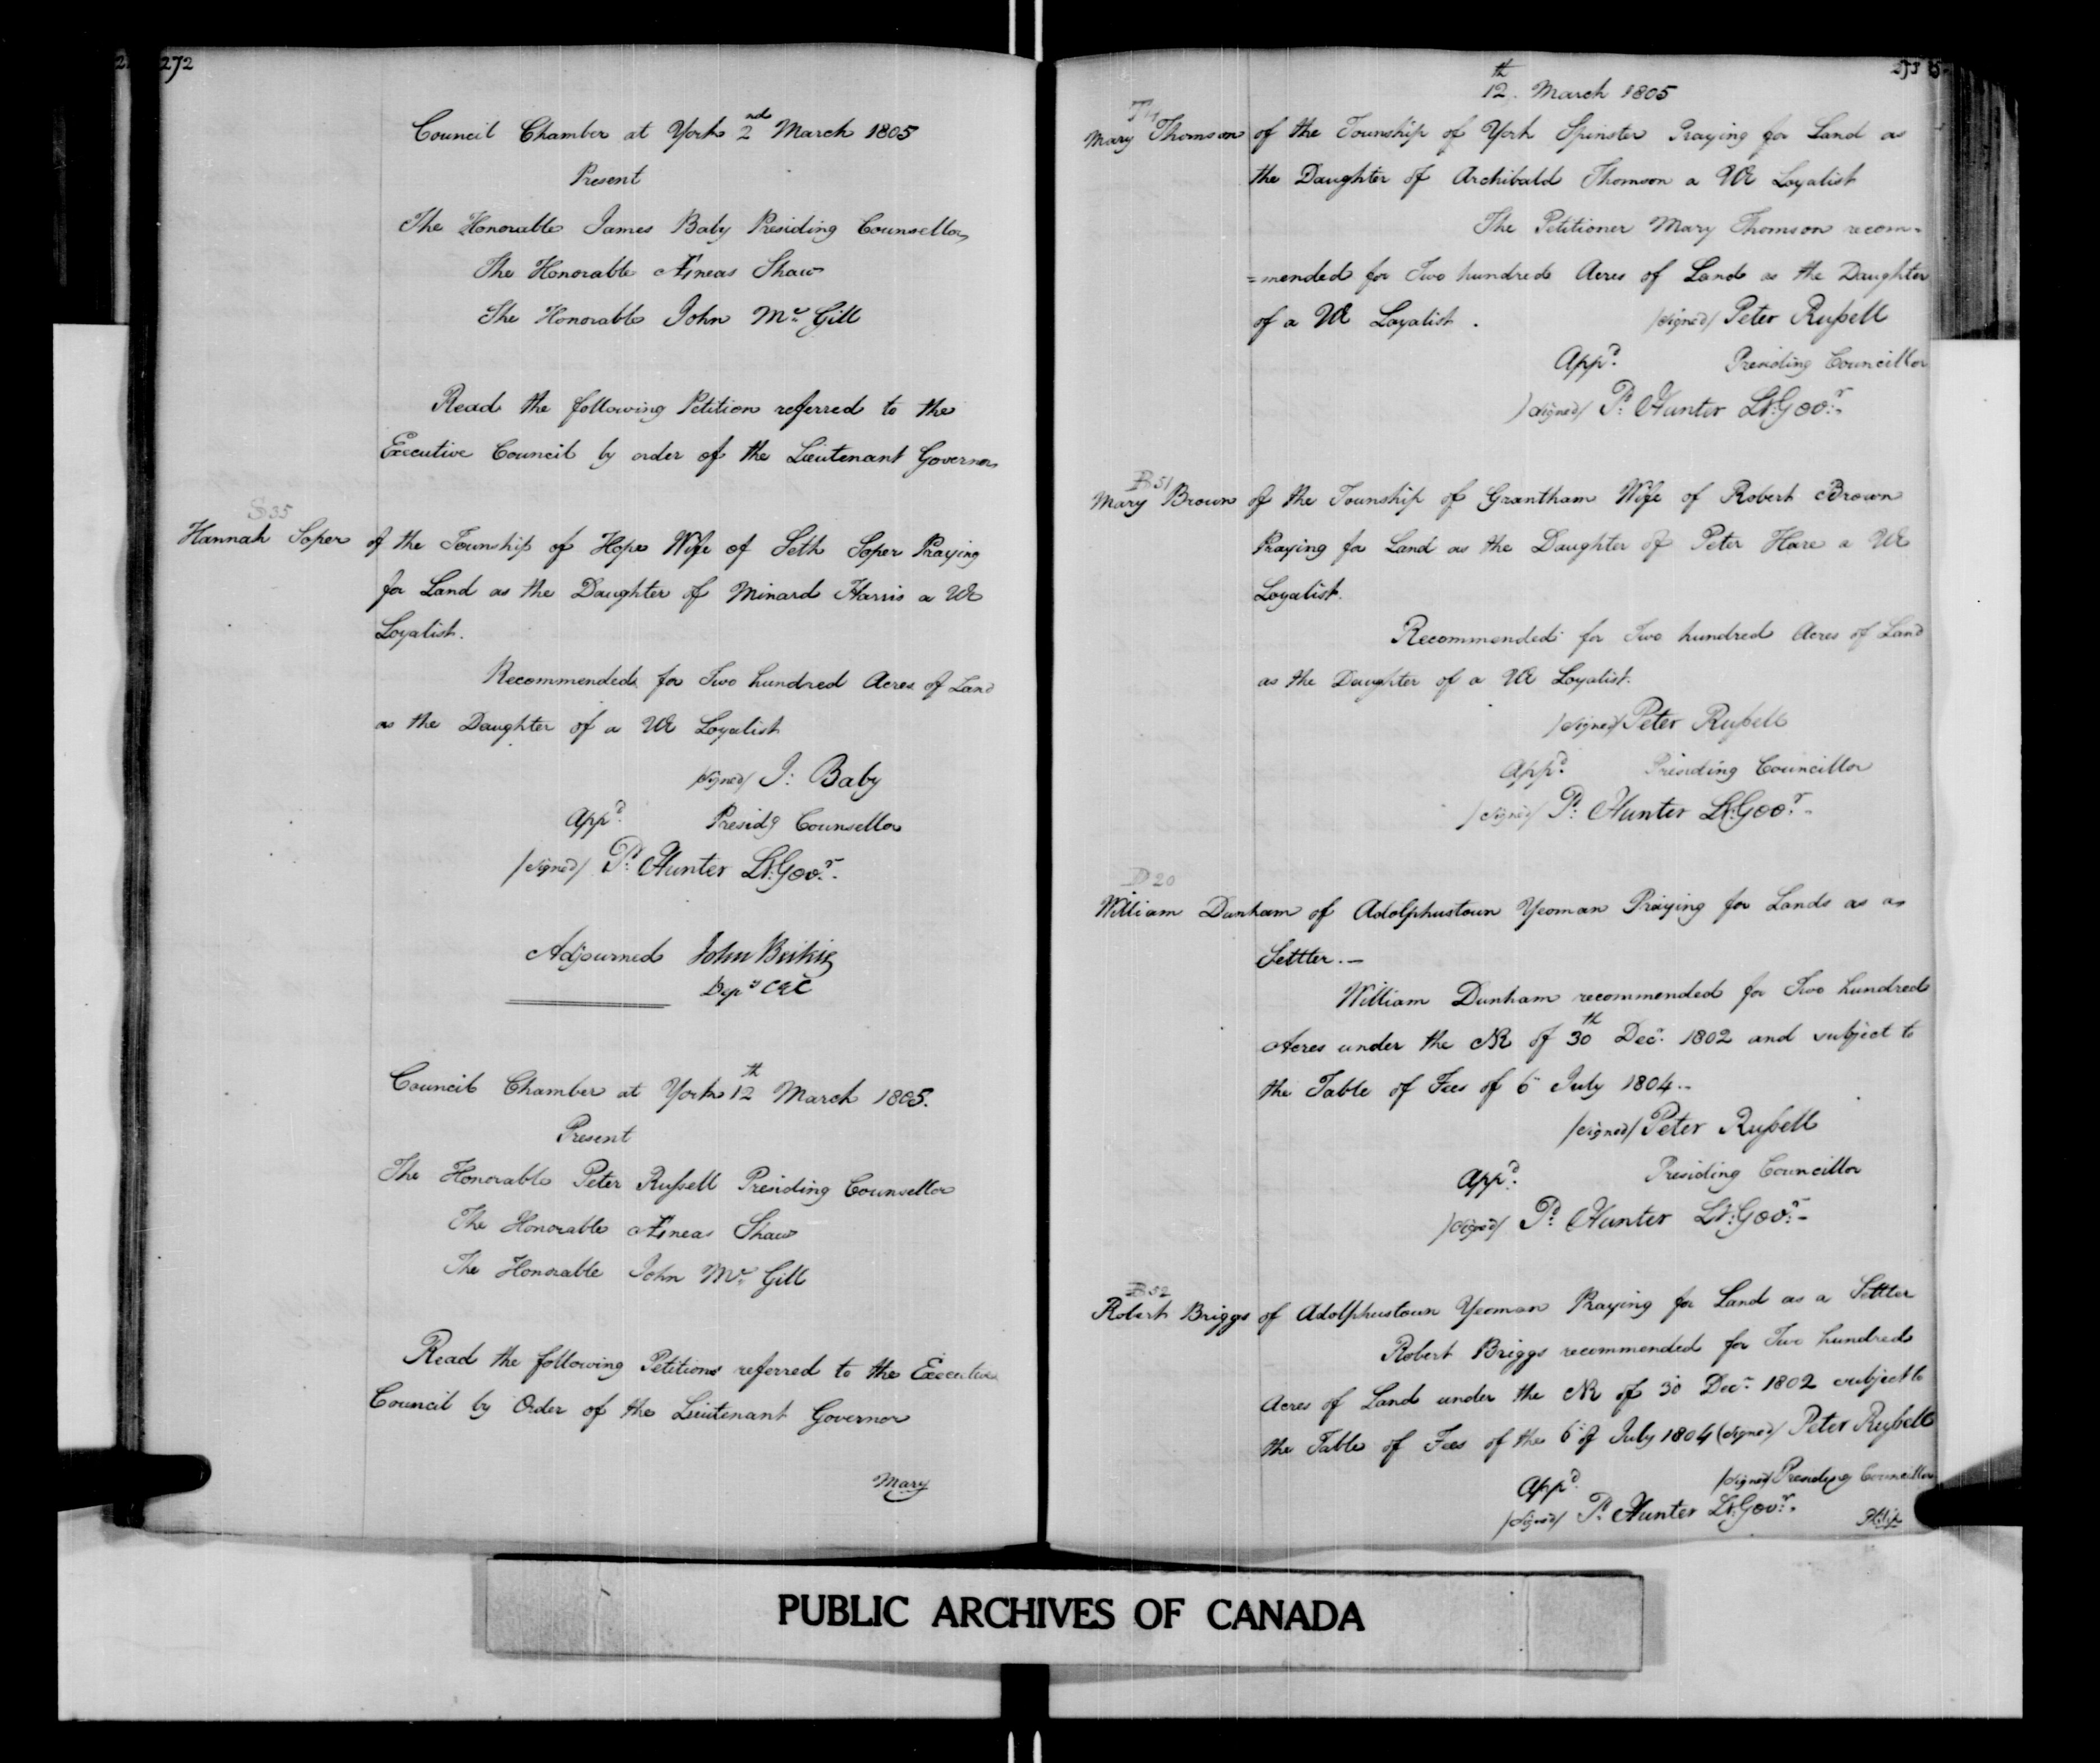 272
Council Chamber at York 2nd March 1805
Present
The Honorable James Baby Presiding Counsellor
The Honorable Æneas Shaw
The Honorable John Mc Gill
Read the following Petition referred to the
Executive Council by order of the Lieutenant Governor
S 35
Hannah Soper of the Township of Hope Wife of Seth Soper Praying
for Land as the Daughter of Minard Harris a UE
Loyalist.
Recommended for Two hundred Acres of Land
as the Daughter of a UE Loyalist
/signed/ J: Baby
Appd. Presidg Counsellor
/signed/ P: Hunter Lt: Govr.
Adjourned John Beikie
Depy CEC
Council Chamber at York 12th March 1805.
Present
The Honorable Peter Russell Presiding Counsellor
The Honorable Æneas Shaw
The Honorable John Mc Gill
Read the following Petitions referred to the Executive
Council by Order of the Lieutenant Governor
Mary
273
12th March 1805
Mary Thomson of the Township of York Spinster Praying for Land as
the Daughter of Archibald Thomson a UE Loyalist
The Petitioner Mary Thomson recom=
=mended for Two hundred Acres of Land as the Daughter
of a UE Loyalist. /signed/ Peter Russell
Appd. Presiding Councillor
/signed/ P: Hunter Lt: Govr.
B 51
Mary Brown of the Township of Grantham Wife of Robert Brown
Praying for Land as the Daughter of Peter Hare a UE
Loyalist.
Recommended for Two hundred Acres of Land
as the Daughter of a UE Loyalist.
/signed/ Peter Russell
Appd. Presiding Councillor
/signed/ P: Hunter Lt: Govr.
D 20
William Dunham of Adolphustown Yeoman Praying for Lands as a
Settler.—
William Dunham recommended for Two hundred
Acres under the NR of 30th Decr. 1802 and subject to
the Table of Fees of 6 July 1804..
/signed/ Peter Russell
Appd. Presiding Councillor
/signed/ P: Hunter Lt: Govr.
B 52
Robert Briggs of Adolphustown Yeoman Praying for Land as a Settler
Robert Briggs recommended for Two hundred
Acres of Land under the NR of 30 Decr. 1802 subject to
the Table of Fees of the 6 of July 1804 (signed) Peter Russell
Appd. /signed/ Presiding Councillor
/signed/ P: Hunter Lt: Govr.
PUBLIC ARCHIVES OF CANADA